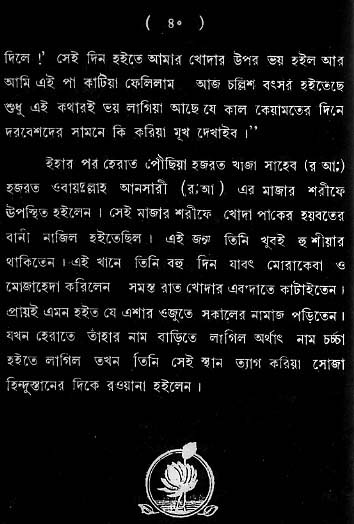 ( ৪০ )
দিলে !' সেই দিন হইতে আমার খোদার উপর ভয় হইল আর
আমি এই পা কাটিয়া ফেলিলাম আজ চল্লিশ বৎসর হইতেছে
শুধু এই কথারই ভয় লাগিয়া আছে যে কাল কেয়ামতের দিনে
দরবেশদের সামনে কি করিয়া মুখ দেখাইব ।"
ইহার পর হেরাত পৌছিয়া হজরত খাজা সাহেব (র আঃ)
হজরত ওবায়দুল্লাহ আনসারী (র;আ) এর মাজার শরীফে
উপস্থিত হইলেন । সেই মাজার শরীফে খোদা পাকের হয়বতের
বানী নাজিল হইতেছিল । এই জন্য তিনি খুবই হুশীয়ার
থাকিতেন । এই খানে তিনি বহু দিন যাবৎ মোরাকেবা ও
মোজাহেদা করিলেন সমস্ত রাত খোদার এবাদাতে কাটাইতেন ।
প্রায়ই এমন হইত যে এশার ওজুতে সকালের নামাজ পড়িতেন ।
যখন হেরাতে তাঁহার নাম বাড়িতে লাগিল অর্থাৎ নাম চর্চ্চা
হইতে লাগিল তখন তিনি সেই স্থান ত্যাগ করিয়া সোজা
হিন্দুস্তানের দিকে রওয়ানা হইলেন ।